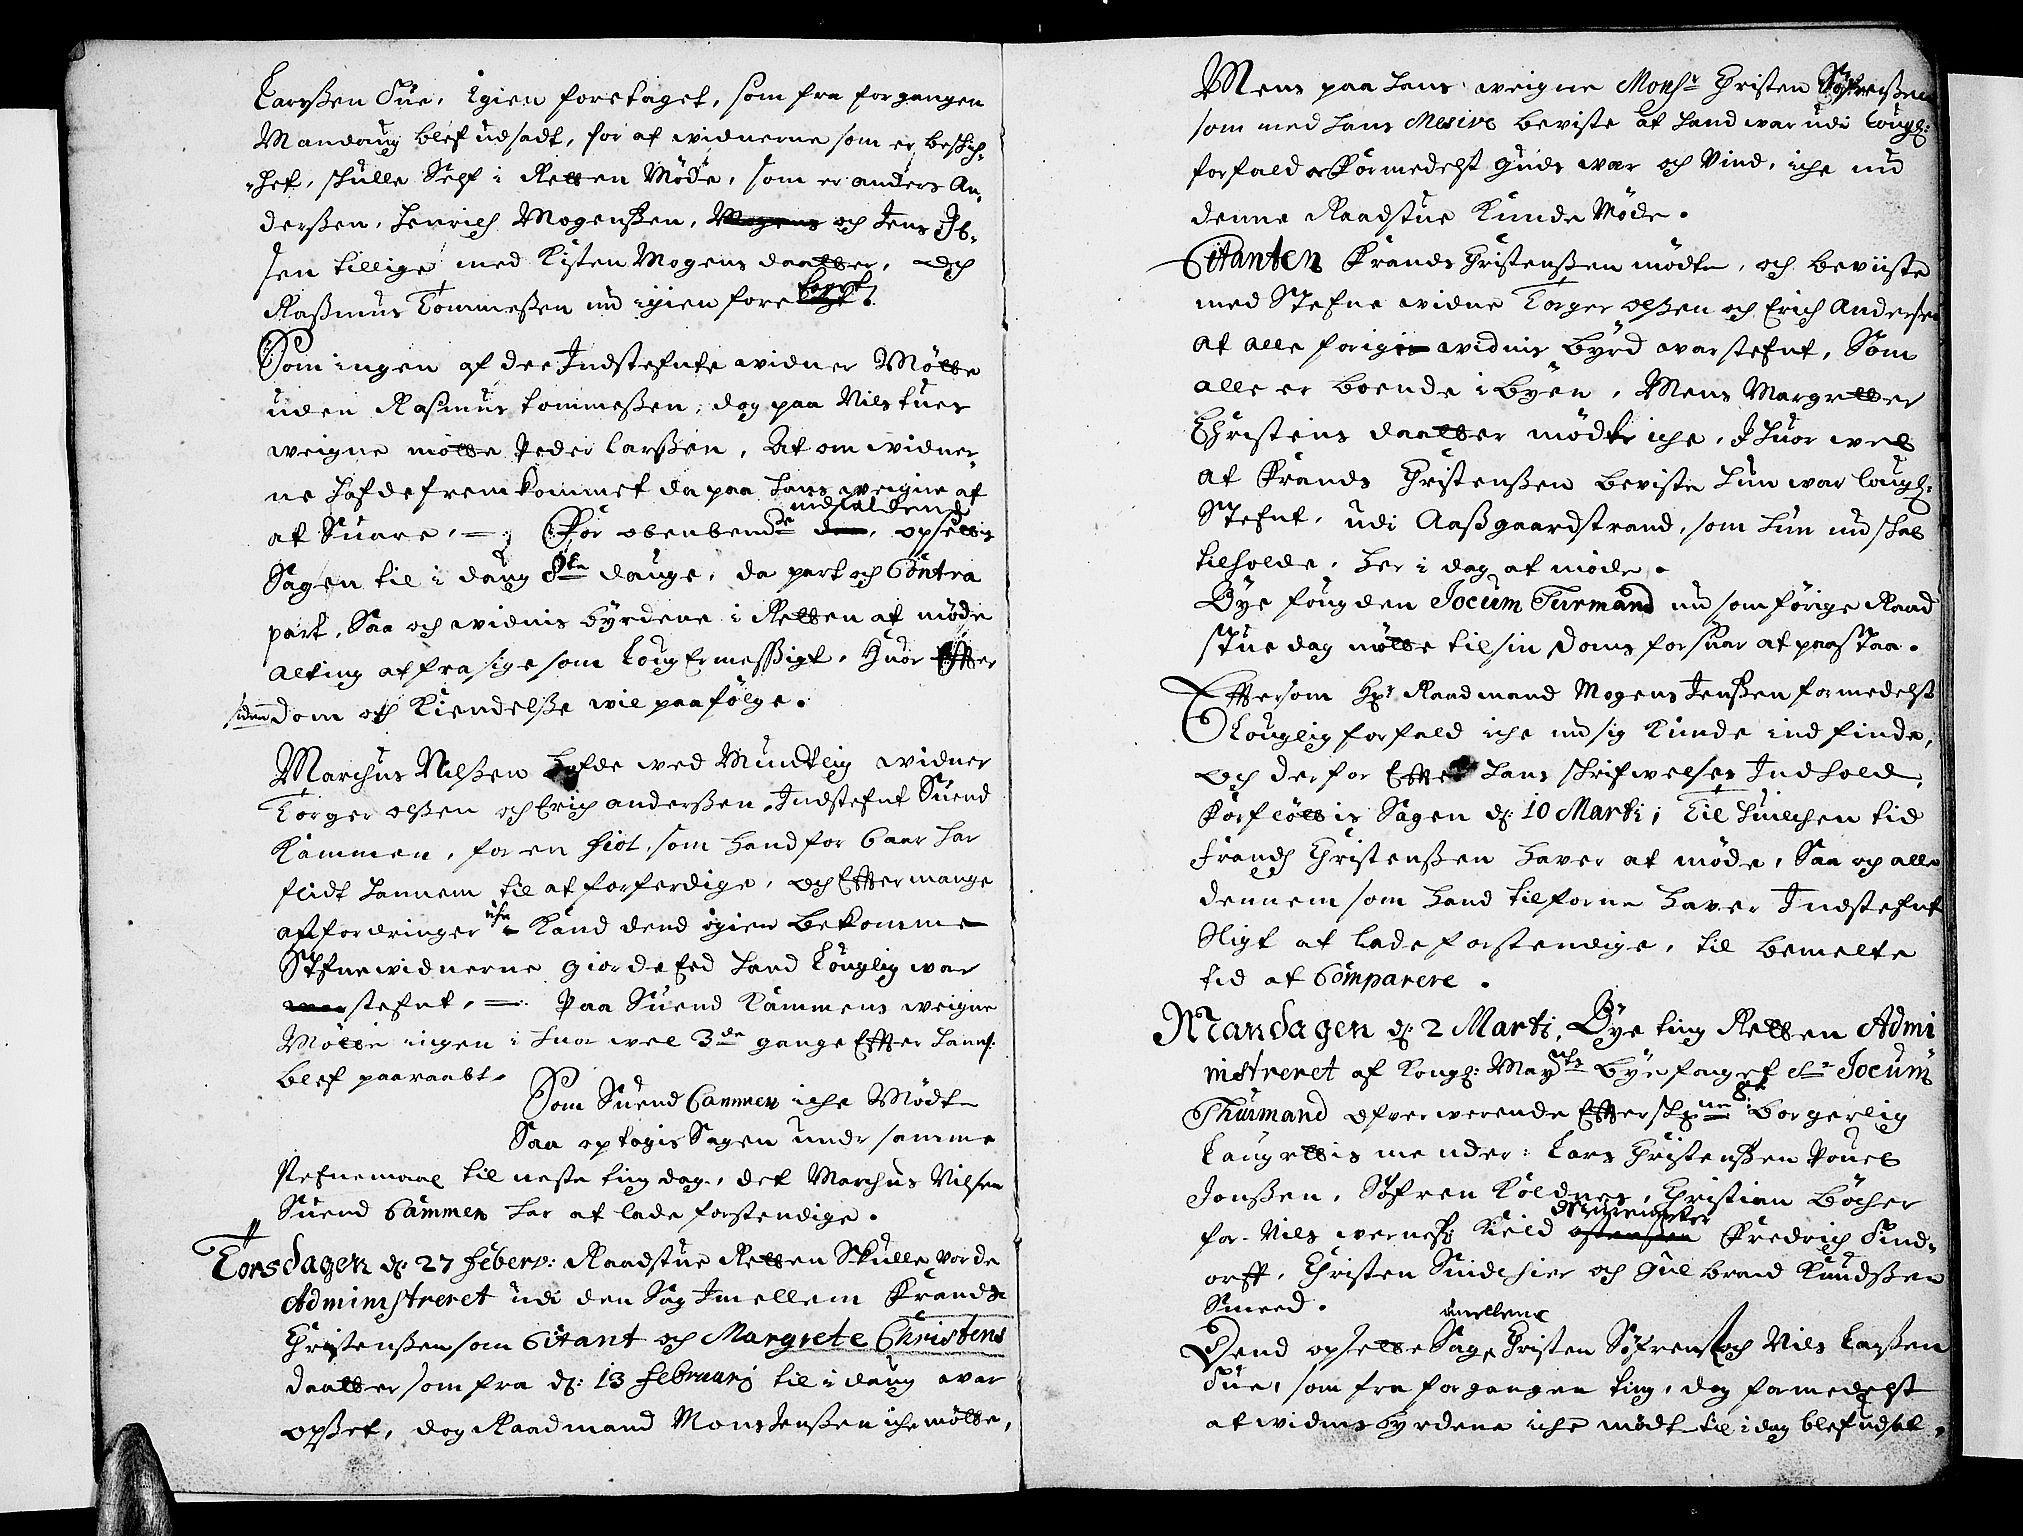 Larsßen Tue, igien foretaget, som fra forgangen
Mandaug blef udsadt, for at widnerne som er beskich,
het, skulle Self i Retten Møde, som er anders An,
derßen, Henrich Mogenßen, Mogens och Jens Ib,
sen tillige med Kisten Mogens daatter, och
Raßmus Tommeßen nu igien fore taget.
Som ingen af dee Indstefnte widner Mötte
uden Rasmus tommeßen, dog paa Nils tues
weigne mötte Peder larßen, At om widner,
ne hafde fremkommet da paa hans weigne at
at Suare, For obenbemte indfaldende, opsettis
Sagen til i daug 8te dauge, da part och Contra
part, Saa och widnis byrdene i Retten at møde
alting at fra sige som Loug Ermessigt, Huor Effter
siden dom och Kiendelße wil paafölge.
Marchus Nilßen hafde wed Mundtlig widner
Törger olßen och Erich anderßen, Indstefnt Suend
Kammen, for en fiol, som hand for 6 aar har
flidt hannem til at forferdige, och Effter mange
affordringer iche Kand dend igien bekomme
Stefnewidnerne giorde Eed hand Louglig war
war stefnt, Paa Suend Kammens weigne
Mötte ingen i huor wel 3de gange Effter hans
blef paaraabt.
Som Suend Cammen iche Mødte
Saa optagis Sagen under samme
stefnemaal til neste ting dag, det Marchus Nilsen
Suend Cammen har at lade forstendige.
Torsdagen d: 27 feberv: Raadstue Retten Skulle vorde
Administreret udi den Sag Imellem Frands
Christenßen som Citant och Margrete Christens
daatter som fra d: 13 februarij til i daug war
opßet, dog Raadmand Mons Jenßen iche mötte,
Mens paa hans weigne Monsr Christen Söfrenßen
som med hans Mesive beviste at hand war udi lougl:
forfald och formedelst Guds wær och Vind, iche nu
denne Raadstue Kunde Møde.
Citanten Frands Christenßen mödte, och beviiste
med Stefne widne Torger olßen och Erich Andersen
at alle forige widnis byrd war stefnt, Som
alle er boende i byen, Mens Margretter
Christens daatter mödte iche, I huor wel
at Frands Christenßen beviste hun war lougl:
Stefnt, udi Aaßgaardstrand, som hun nu skal
tilholde, her i dag at møde.
Bye fougden Jocum Turmand nu som førige Raad
stue dag mötte til sin doms forsuar at paastaa.
Effttersom Hr Raadmand Mogens Jenßen formedelst
Louglig forfald iche nu sig Kunde indfinde,
och derfor Effter hans schrifwelses Indhold,
Forflöttis Sagen d: 10 Marti; Til huilchen tid
frands Christenßen haver at møde, Saa och alle
dennem som hand tilforne haver Indstefnt
Sligt at lade forstendige, til bemelte
tid at Comparere.
Mandagen d: 2 Marti, Bye ting Retten Admi
nistreret af Kongl: Maytts bye foget Sr Jocum
Thurmand ofverwerende Effterschne 8te borgerlig
Laugrettis mender: Lars Christenßen Pouel
Jonßen, Söfren Koldners, Christian Böcher
for Nils wernes Kield ostenßen Fredrich Sind,
orff, Christen Snidchier och Gulbrand Knudßen
Smeed.
Dend opsette Sag imellem Christen Söfrens: och Nils Larßen
Tue, som fra forgangen ting, dog formedelst
at widnis byrdene iche mödte til i dag blef udsat,